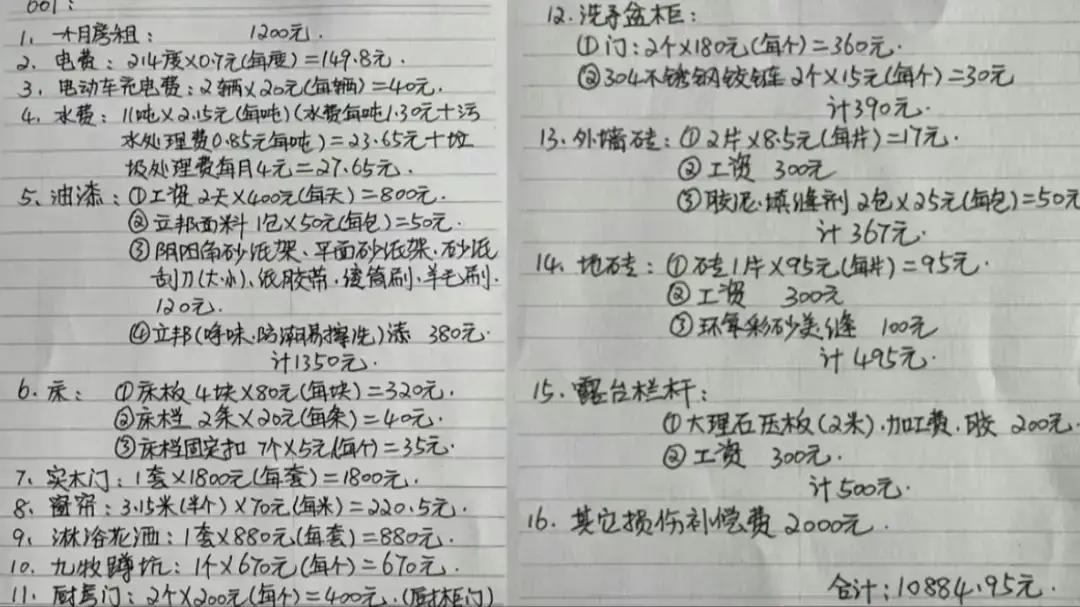 001:
1. 一个月房租: 1200元.
2. 电费: 214度×0.7元(每度)=149.8元.
3. 电动车充电费: 2辆×20元(每辆)=40元.
4. 水费: 11吨×2.15元(每吨)(水费每吨1.30元+污
水处理费0.85元每吨)=23.65元+垃
圾处理费每月4元=27.65元.
5. 油漆: ①工资 2天×400元(每天)=800元.
②立邦面料 1包×50元(每包)=50元.
③阴阳角砂纸架、平面砂纸架、砂纸
刮刀(大.小)、纸胶带.滚筒刷.羊毛刷.
120元.
④立邦(净味.防潮易擦洗)漆 380元.
计1350元.
6. 床: ①床板 4块×80元(每块)=320元.
②床档 2条×20元(每条)=40元.
③床档固定扣 7个×5元(每个)=35元.
7. 实木门: 1套×1800元(每套)=1800元.
8. 窗帘: 3.15米(半个)×70元(每米)=220.5元.
9. 淋浴花洒: 1套×880元(每套)=880元.
10. 九牧蹲坑: 1个×670元(每个)=670元.
11. 厨房门: 2个×200元(每个)=400元.(厨柜门)
12. 洗手盆柜:
①门: 2个×180元(每个)=360元.
②304不锈钢铰链 2个×15元(每个)=30元
计390元.
13. 外墙砖: ①2片×8.5元(每片)=17元.
②工资 300元
③胶泥.填缝剂 2包×25元(每包)=50元
计367元.
14. 地砖: ①砖1片×95元(每片)=95元.
②工资 300元
③环氧彩砂美缝 100元
计495元.
15. 露台栏杆:
①大理石压板(2米).加工费.胶 200元.
②工资 300元.
计500元.
16. 其它损伤补偿费 2000元.
合计: 10884.95元.